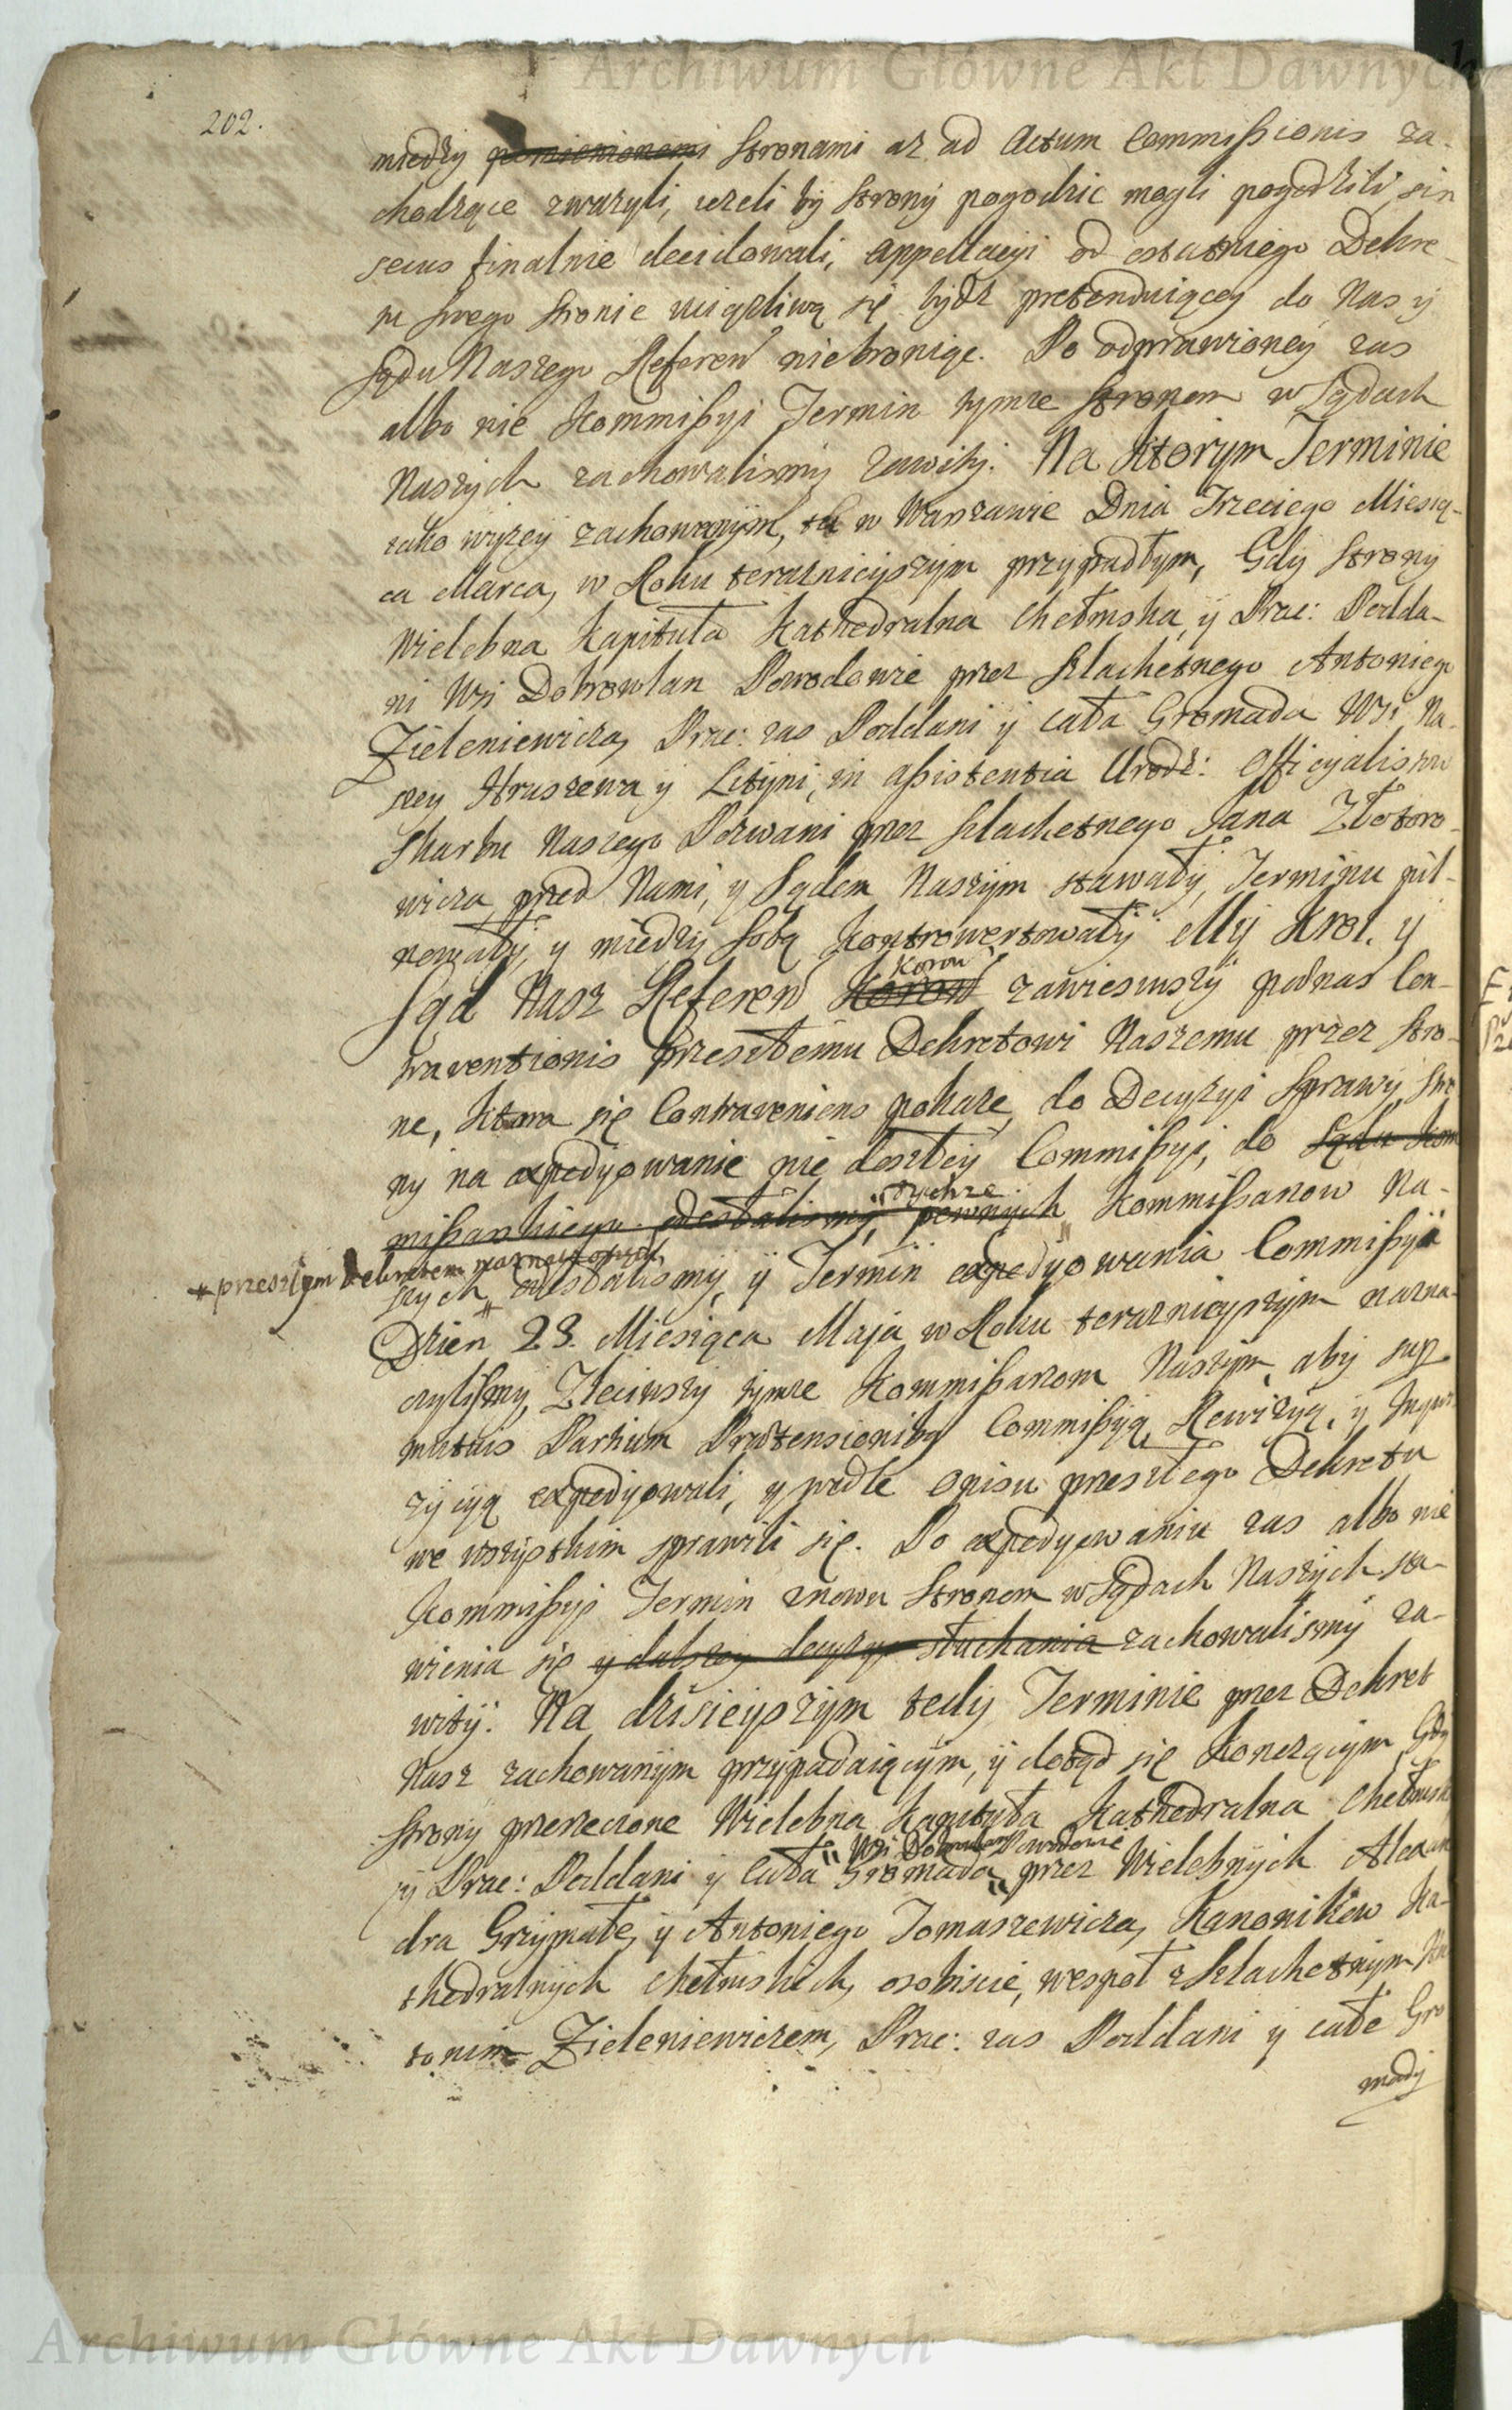 Archiwum Główne Akt Dawnych
202.
między pomienionemi Stronami aż ad Actum Commissionis za-
chodzące zważyli, ieżeli by Strony pogodzic mogli pogodzili, sin
secus finalnie decidowali, appellacyi od ostatniego Dekre-
tu swego stronie uciążliwą się bydź pretenduiącey do Nas y
Sądu Naszego Referen niebroniąc. Po odprawioney zas
albo nie Kommissyi Termin tymże Stronom w Sądach
Naszych zachowalismy zawity. Na Ktorym Terminie
iako wyżey zachowanym, tu w Warszawie Dnia Trzeciego Miesią-
ca Marca, w Roku teraznieyszym przypadłym, Gdy Strony
Wielebna Kapituła Kathedralna Chełmska, y Prac: Podda-
ni Wsi Dobrowlan Powodowie przez Szlachetnego Antoniego
Zieleniewicza, Prac: zas Poddani y cała Gromada Wsi Na-
szey Hruszewa y Lityni, in assistentia Urodz: Officyalistow
Skarbu Naszego Pozwani przez Szlachetnego Jana Złotoro-
wicza, przed Nami, y Sądem Naszym stawały, Terminu pil-
nowały, y między sobą kontrowertowały My Krol. y
Koron
Sąd Nasz Referen Koron zawiesiwszy podnas Con-
traventionis przeszłemu Dekretowi Naszemu przez Stro-
ne, Ktora się Contraveniens pokaże, do Decyzyi Sprawy, Stro
ny na expedyowanie nie doszłey Commissyi, do Sądu Kom
tychże
missarskiego odesłalismy, pewnych Kommissarzow Na-
* przeszłym Dekretem naznaczonych
szych odesłalismy, y Termin expedyowania Commissyi
Dzien 23. Miesiąca Maja w Roku teraznieyszym nazna-
czylismy, Zleciwszy tymże Kommissarzom Naszym, aby sup
mutuis Partium Prætensionibus Commissyą, Rewizyą, y Inqwi
zycyą expedyowali, y wedle opisu przeszłego Dekretu
we wszystkim sprawili się. Po expedyowaniu zas albo nie
Kommissyi Termin znowu Stronom w Sądach Naszych sta-
wienia się y dalszey decyzyi słuchania zachowalismy za-
wity. Na dzisieyszym tedy Terminie przez Dekret
Nasz zachowanym przypadaiącym, y dotąd się Konczącym, Gdy
Strony przerzeczone Wielebna Kapituła Kathedralna Chełmsk
Wsi Dobrowlan Powodowie
y Prac: Poddani y cała Gromada, przez Wielebnych Alexan
dra Grzymałę, y Antoniego Tomaszewicza, Kanonikow Ka-
thedralnych Chełmskich, osobiscie, wespoł z Szlachetnym An
tonim Zieleniewiczem, Prac: zas Poddani y całe Gro
mady
Archiwum Główne Akt Dawnych